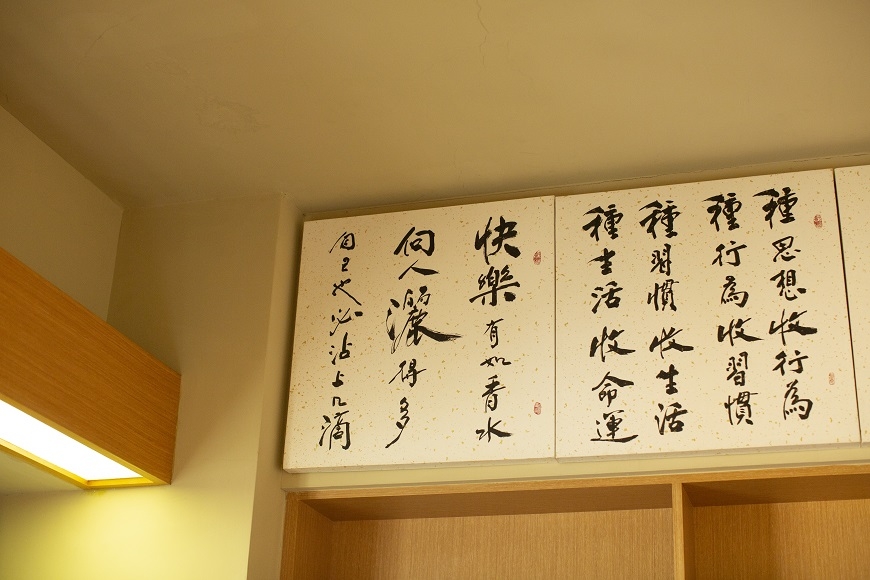 種思想收行為
種行為收習慣
種習慣收生活
種生活收命運
快樂有如香水
向人灑得多
自己也必沾上几滴